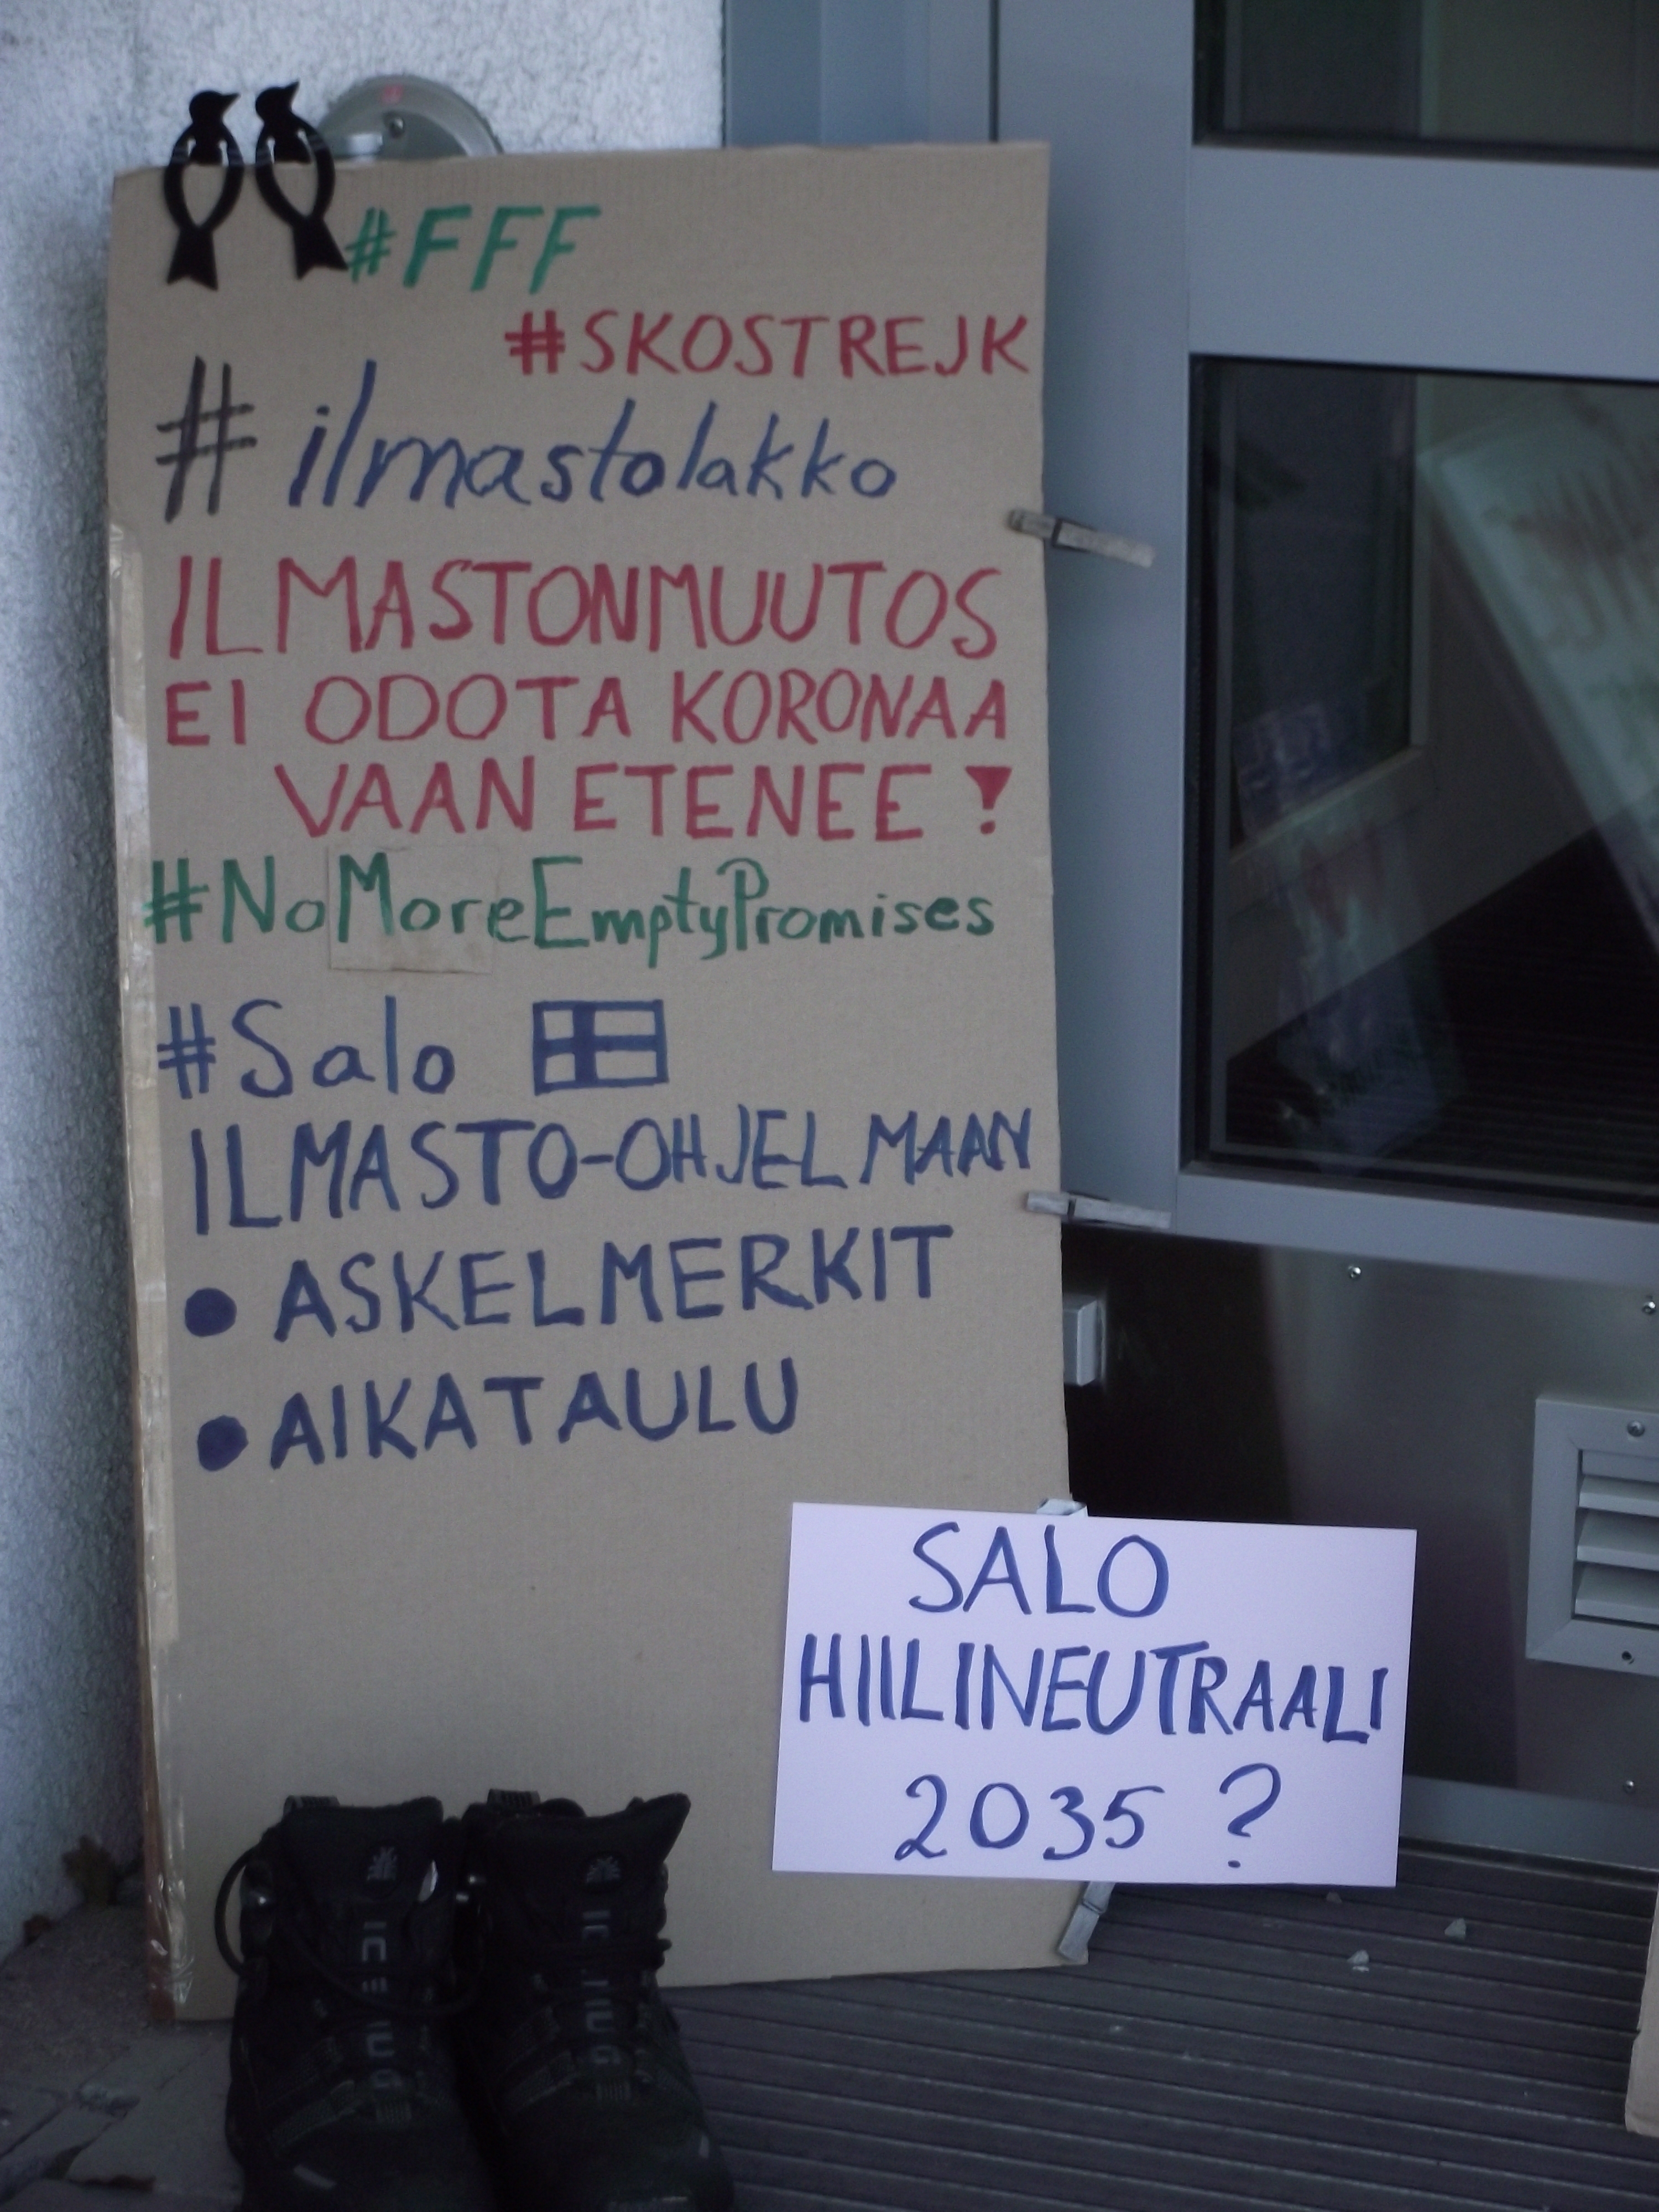 #FFF
#SKOSTREJK
# ilmastolakko
ILMASTONMUUTOS
EI ODOTA KORONAA
VAAN ETENEE!
#NoMoreEmptyPromises
#Salo
ILMASTO-OHJELMAAN
• ASKELMERKIT
• AIKATAULU
SALO
HIILINEUTRAALI
2035 ?
ICEBUG
ICEBUG